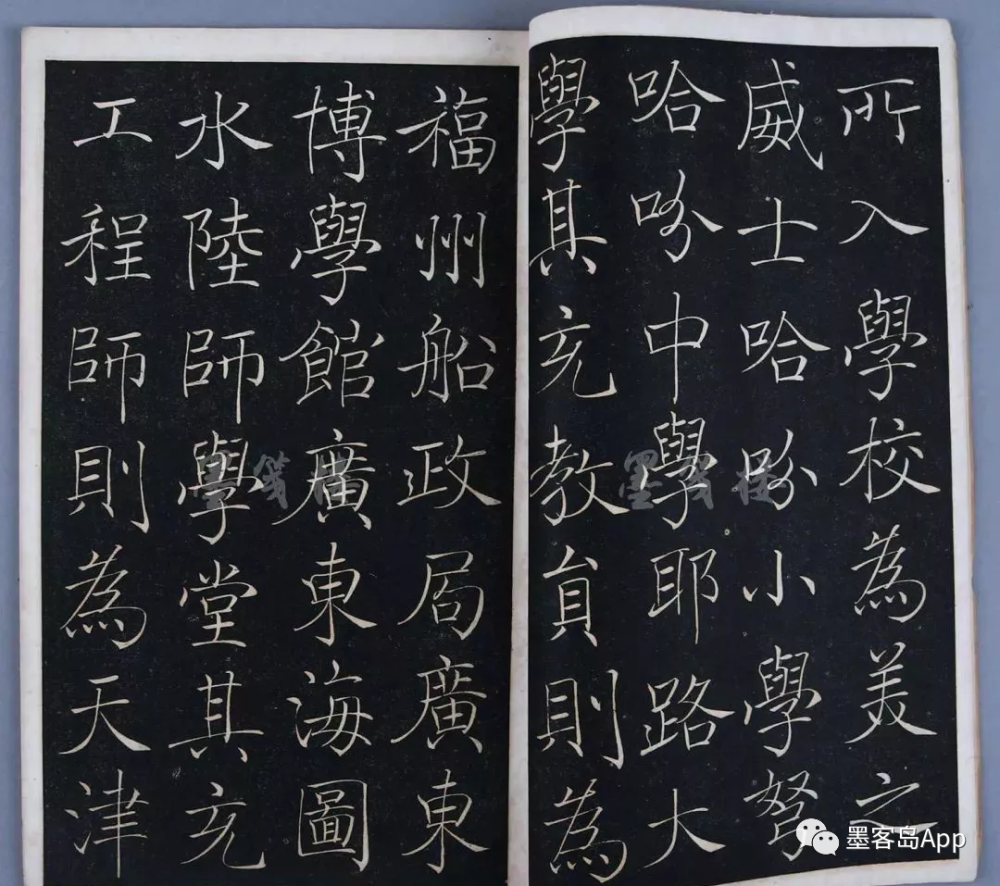 所入學校為美之
威士哈吩小學弩
哈吩中學耶路大
學其充教員則為
福州船政局廣東
博學館廣東海圖
水陸師學堂其充
工程師則為天津
墨客岛App